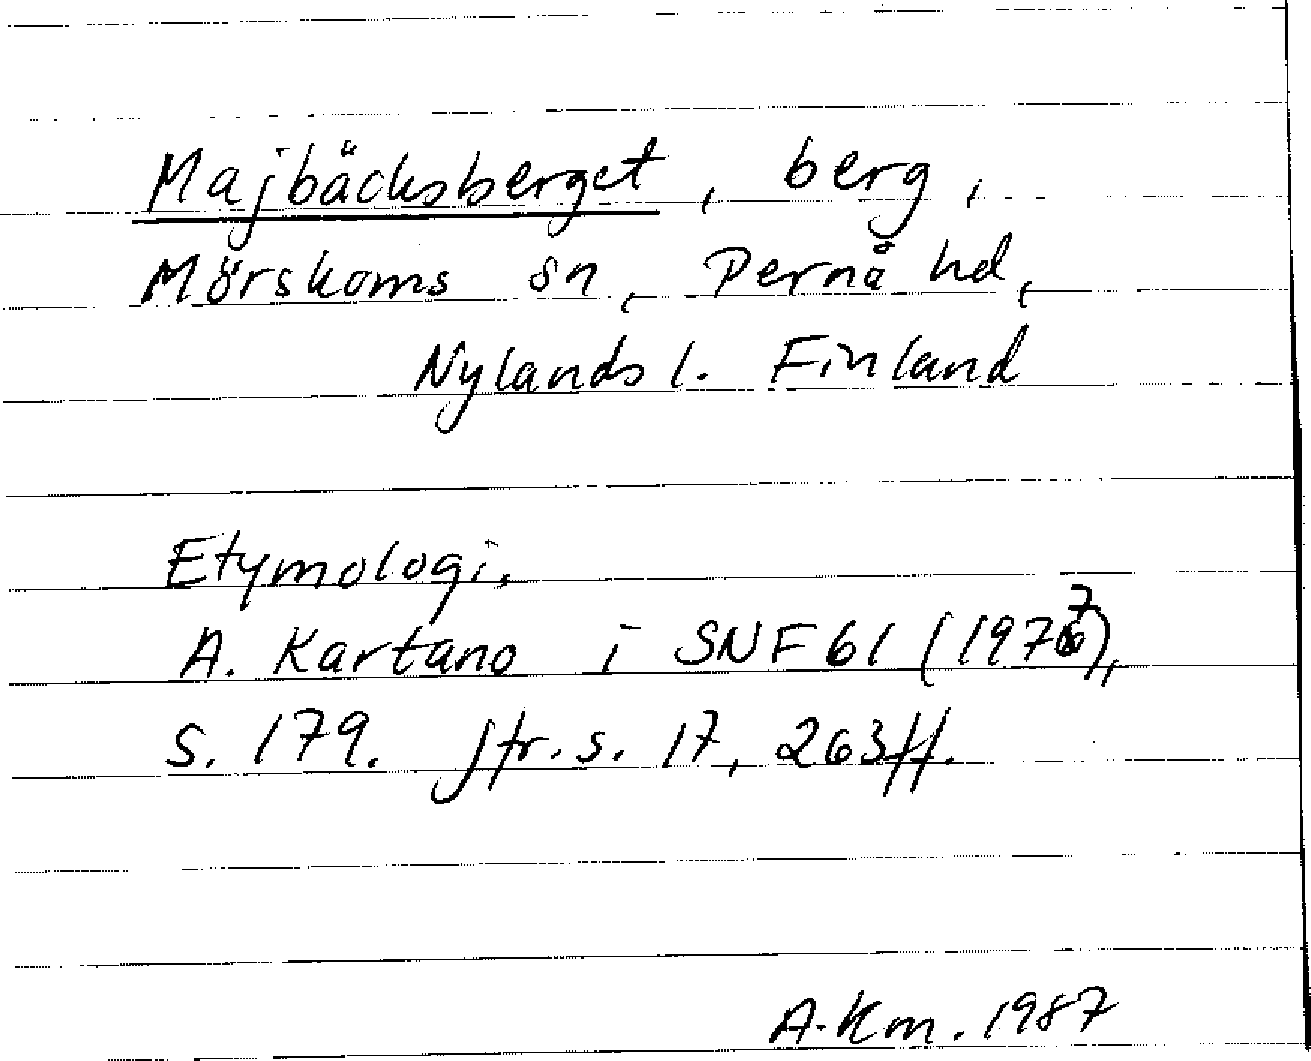 Majbäcksberget, berg,
Mörskoms sn, Pernå hd,
Nylands l. Finland
Etymologi.
A. Kartano i SNF 61 (1977),
s. 179. Jfr. s. 17, 263ff.
A-Km. 1987